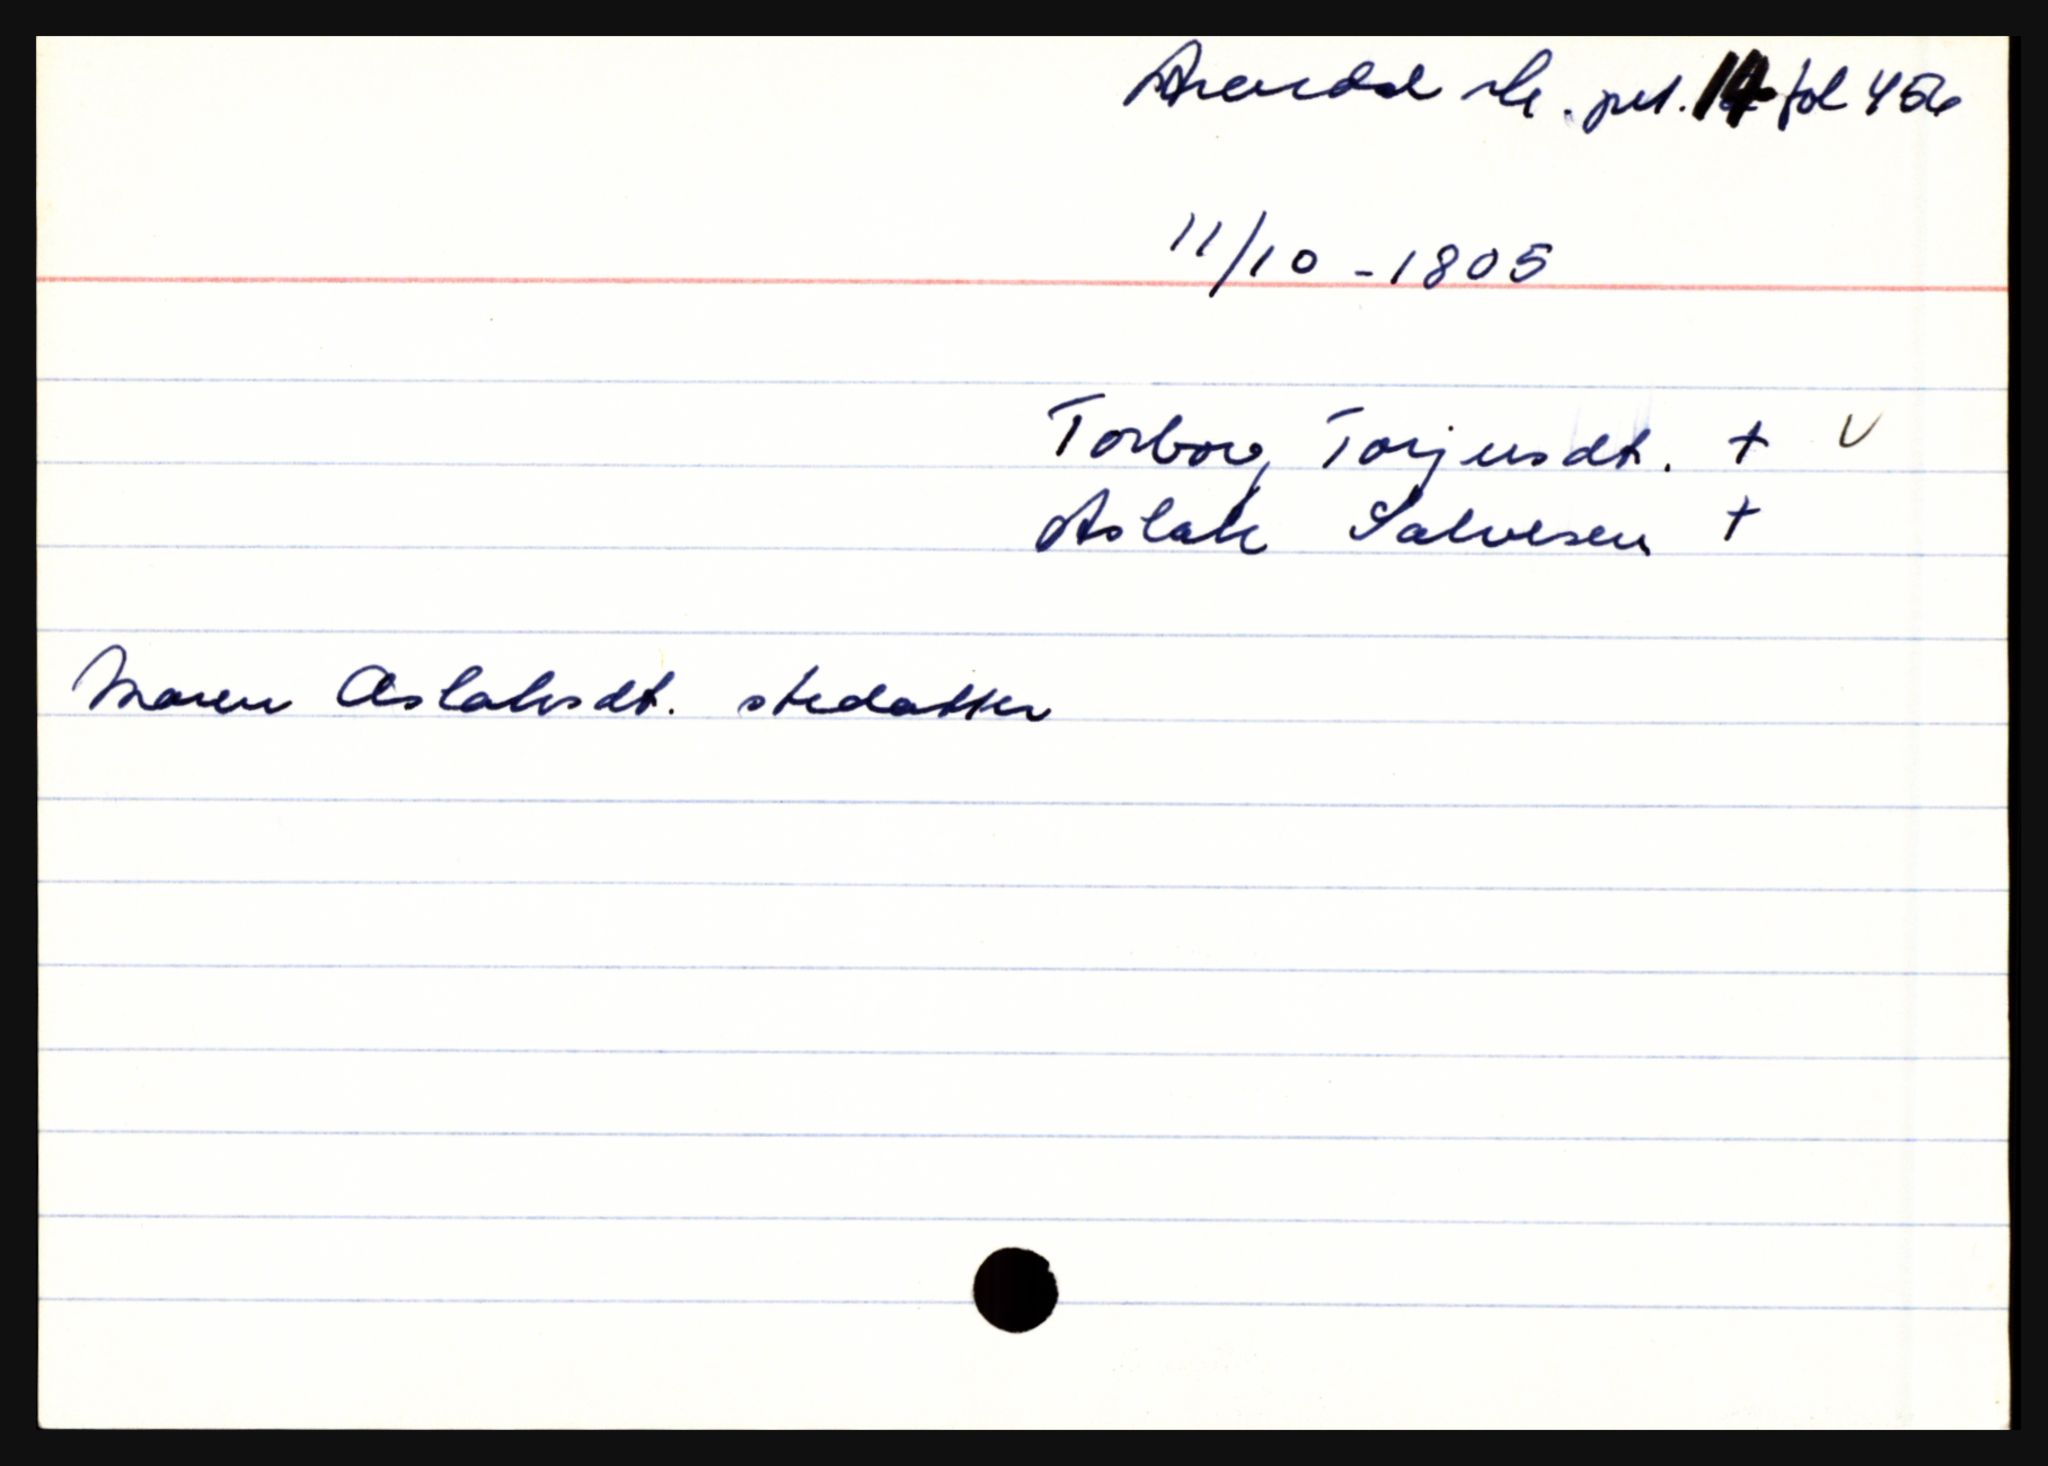 Arendal sk. prt. 14 fol 456
11/10 - 1805
Torborg Torjusdt. + v
Aslak Salvesen +
Maren Aslaksdt. stedatter